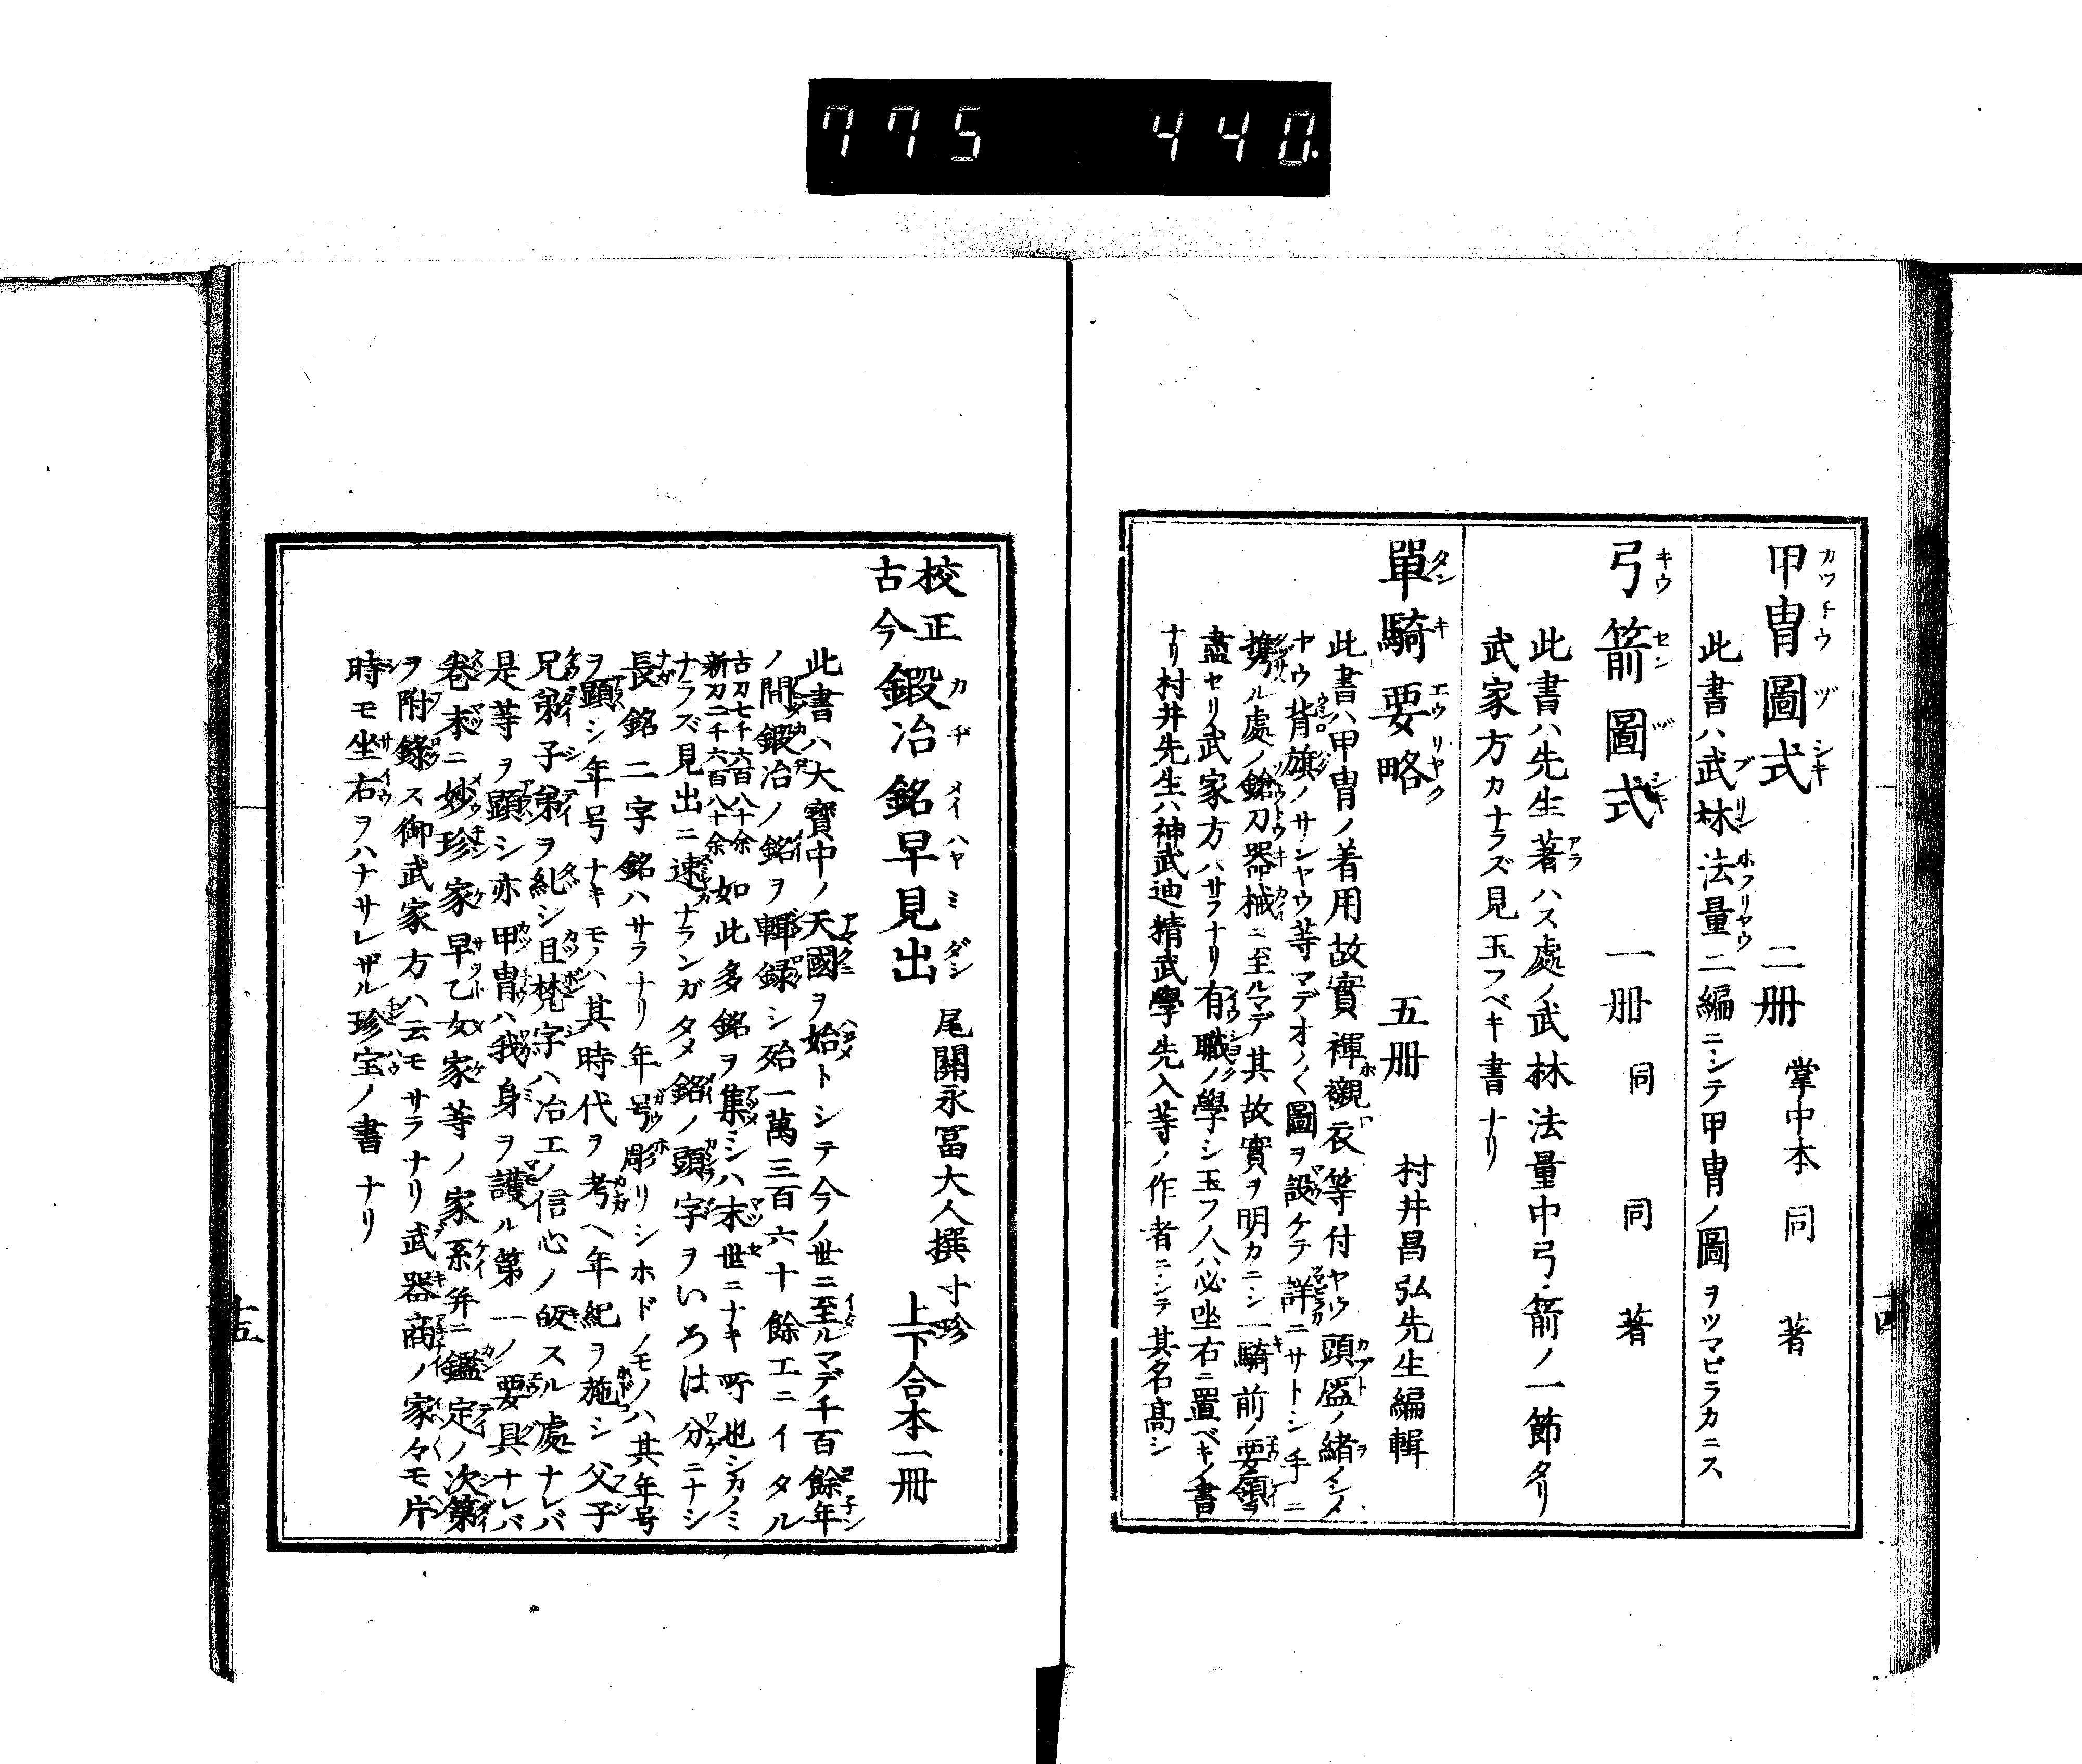 775 440.
甲冑圖式 二册 掌中本 同 著
此書ハ武林法量二編ニシテ甲冑ノ圖ヲツマビラカニス
弓箭圖式 一册 同 同 著
此書ハ先生著ハス處ノ武林法量中弓箭ノ一節タリ
武家方カナラズ見玉フベキ書ナリ
單騎要略 五册 村井昌弘先生編輯
此書ハ甲冑ノ着用故實褌襯衣等付ヤウ頭盔ノ緒ノシメ
ヤウ背旗ノサシヤウ等マデオノ〱圖ヲ設ケテ詳ニサトシ手ニ
携ル處ノ鎗刀器械ニ至ルマデ其故實ヲ明カニシ一騎前ノ要領ヲ
盡セリ武家方ハサラナリ有職ノ學シ玉フ人ハ必坐右ニ置ベキノ書
ナリ村井先生ハ神武迪精武學先入等ノ作者ニシテ其名高シ
十四
校正
古今
鍛冶銘早見出 尾關永冨大人撰 寸珍
上下合本一册
此書ハ大寶中ノ天國ヲ始トシテ今ノ世ニ至ルマデ千百餘年
ノ間鍛冶ノ銘ヲ輯録シ殆一萬三百六十餘工ニイタル
古刀七千六百八十余
新刀二千六百八十余
如此多銘ヲ集ミシハ末世ニナキ所也シカノミ
ナラズ見出ニ速ナランガタメ銘ノ頭字ヲいろは分ニナシ
長銘二字銘ハサラナリ年号彫リシホドノモノハ其年号
ヲ顕シ年号ナキモノハ其時代ヲ考ヘ年紀ヲ施シ父子
兄弟子弟ヲ糺シ且梵字ハ冶工ノ信心ノ皈スル處ナレバ
是等ヲ顕シ亦甲冑ハ我身ヲ護ル第一ノ要具ナレバ
巻末ニ妙珍家早乙女家等ノ家系并ニ鑑定ノ次第
ヲ附録ス御武家方ハ云モサラナリ武器商ノ家々モ片
時モ坐右ヲハナサレザル珍宝ノ書ナリ
十五